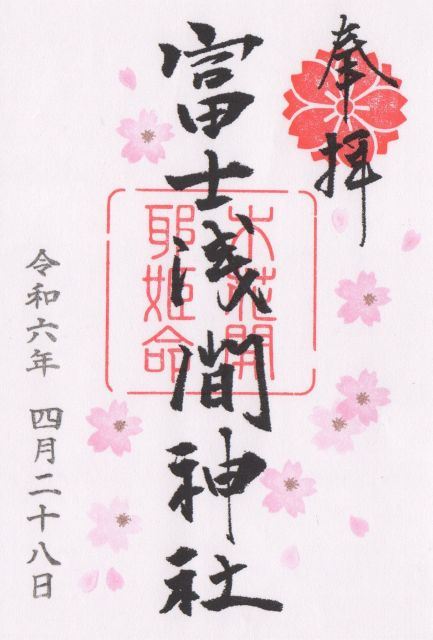 奉拝
富士浅間神社
木花開
耶姫命
令和六年 四月二十八日